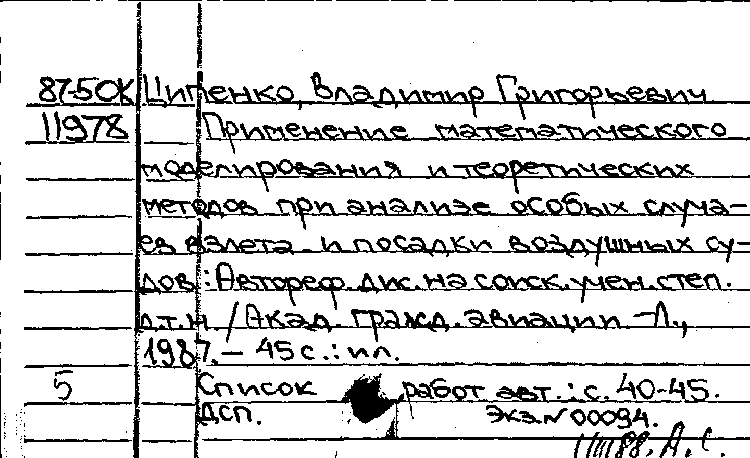 87-5ОК Ципенко, Владимир Григорьевич
11978 Применение математического
моделирования и теоретических
методов при анализе особых случа-
ев взлета и посадки воздушных су-
дов : Автореф. дис. на соиск. учен. степ.
д.т.н. / Акад. гражд. авиации. - Л.,
1987. - 45 с. : ил.
5 Список работ авт. : с. 40-45.
ДСП. Экз. N 00094.